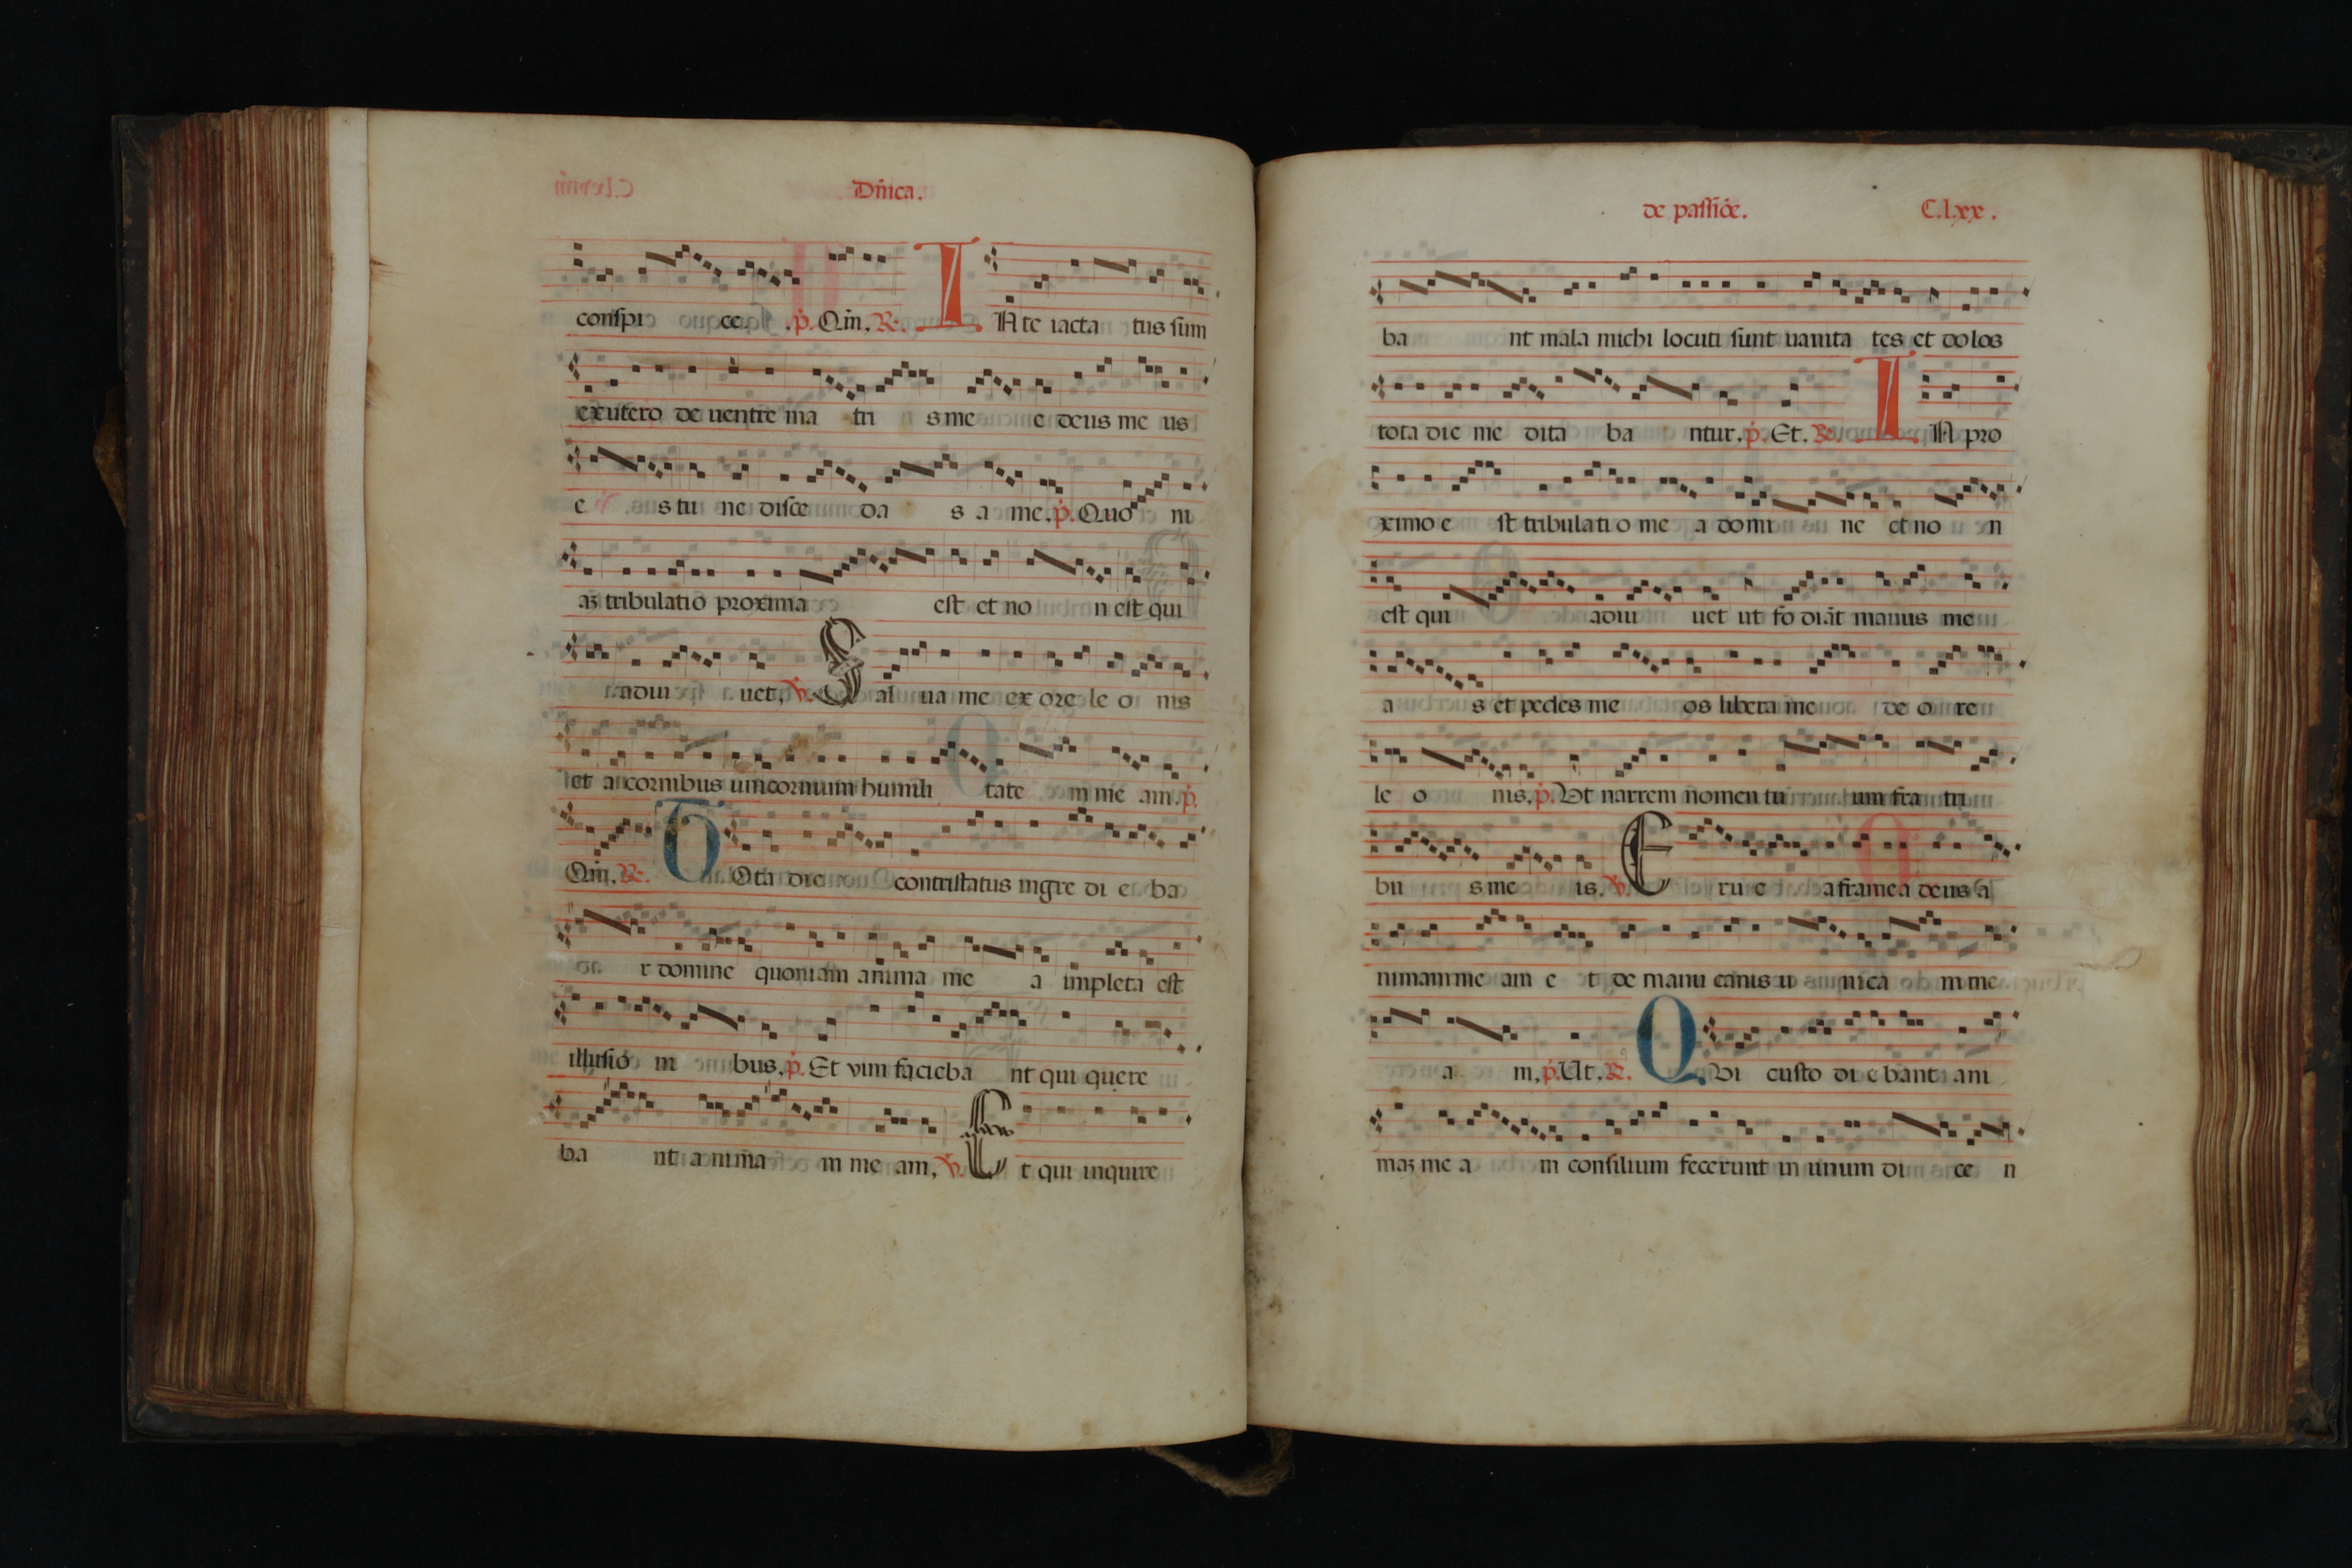 Dn̄ica.
conspi ce .p̄. Qm̄. R̄. IN te iacta tus sum
ex utero de uentre ma tri s me e deus me us
e s tu ne disce da s a me. p̄. Quo ni
aȝ tribulatio proxima est et no n est qui
adiu uet, v̄. Sal ua me ex ore le o nis
et a cornibus unicornium humili tate m me am. p̄.
Qm̄. R̄. TOta die contristatus ingre di e ba
r domine quoniam anima me a impleta est
illusio ni bus. p̄. Et vim facieba nt qui quere
ba nt a nima m me am, v̄. Et qui inquire
de passiōe. C.l.xx.
ba nt mala michi locuti sunt uanita tes et dolos
tota die me dita ba ntur. p̄. Et. R̄. IN pro
ximo e st tribulati o me a domi ne et no n
est qui adiu uet ut fo diāt manus me
a s et pedes me os libera me de o re
le o nis. p̄. Vt narrem nomen tu um fra tri
bu s me is. v̄. Eru e a framea deus a
nimam me am e t de manu canis u nica m me
a m. p̄. Ut. R̄. QVi custo di e bant ani
maȝ me a m consilium fecerunt in unum di ce n